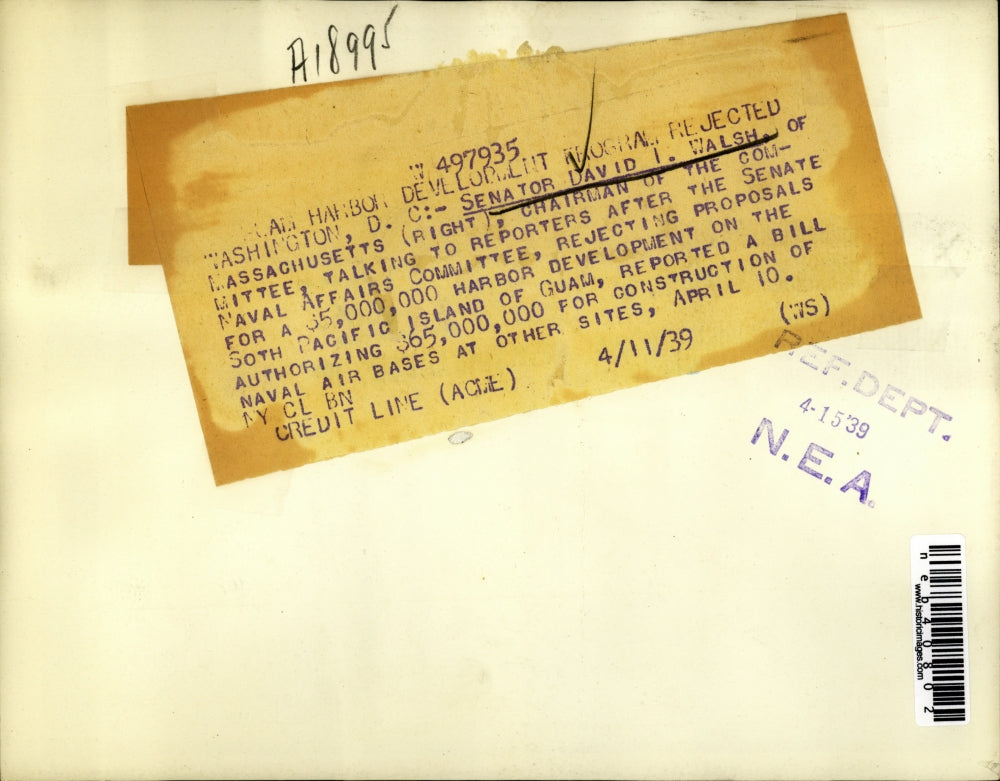 A18995
W 497935
GUAM HARBOR DEVELOPMENT PROGRAM REJECTED
WASHINGTON, D. C:- SENATOR DAVID I. WALSH, OF
MASSACHUSETTS (RIGHT), CHAIRMAN OF THE COM-
MITTEE, TALKING TO REPORTERS AFTER THE SENATE
NAVAL AFFAIRS COMMITTEE, REJECTING PROPOSALS
FOR A $5,000,000 HARBOR DEVELOPMENT ON THE
SOTH PACIFIC ISLAND OF GUAM, REPORTED A BILL
AUTHORIZING $65,000,000 FOR CONSTRUCTION OF
NAVAL AIR BASES AT OTHER SITES, APRIL 10.
NY CL BN 4/11/39 (WS)
CREDIT LINE (ACME)
REF. DEPT.
4-15'39
N.E.A.
neb40802
www.historicimages.com